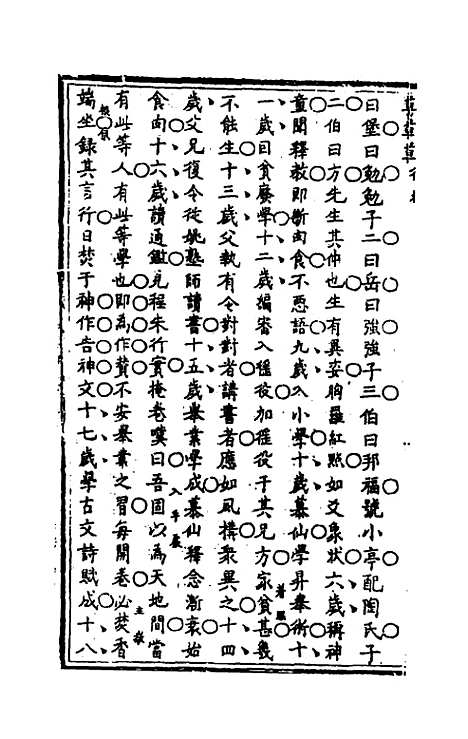 曰堡曰勉勉子二曰岳曰強強子三伯曰邦福號小亭配陶氏子
二伯曰方先生其仲也生有異姿胸羅紅㸃如爻象狀六歲稱神
童聞釋教即斷肉食不惡語九歲入小學十歲慕仙學昇舉術十
一歲因貧廢學十二歲編審入徭役加徭役于其兄方家貧甚幾
不能生十三歲父執有令對對者講書者應如風構衆異之十四
歲父兄復令從姚塾師讀書十五歲舉業學成慕仙釋念漸衰始
食肉十六歲讀通鑑見程朱行實掩卷嘆曰吾固以為天地間當
有此等人有此等學也即為作贊不安舉業之習每開卷必焚香
端坐錄其言行日焚于神作告神文十七歲學古文詩賦成十八
着眼
入手處
主敬